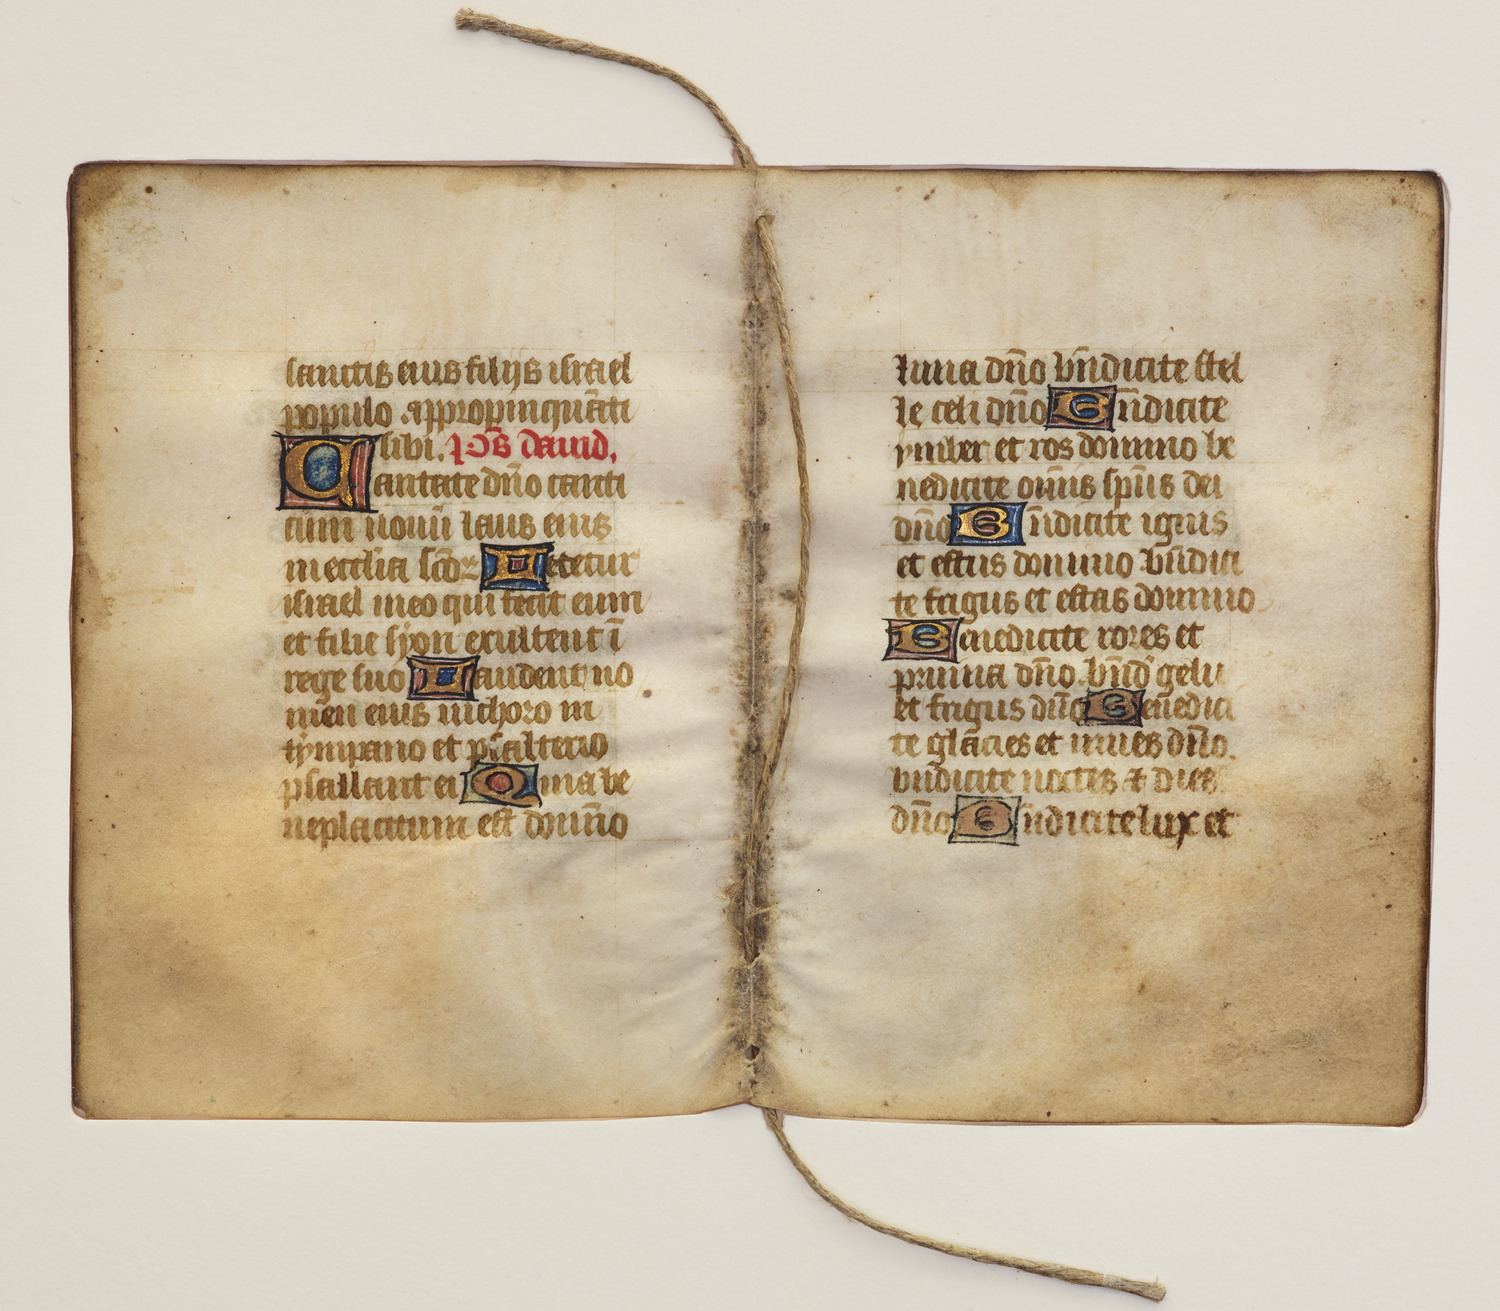 sanctis eius filijs israel
populo appropinquāti
sibi. Ps̄ dauid,
Cantate dn̄o canti
cum nouū laus eius
in ecclīa sc̄oꝝ Letetur
israel in eo qui fecit eum
et filie syon exultent ī
rege suo Laudent no
mēn eius in choro in
tympano et psalterio
psallant ei Quia be
neplacitum est domīno
luna dn̄o bn̄dicite stel
le celi dn̄o Bn̄dicite
ymber et ros domino be
nedicite om̄is sp̄us dei
dn̄o Bn̄dicite ignis
et estus domino bn̄dici
te frigus et estas domino
Benedicite rores et
pruina dn̄o bn̄d gelu
et frigus dn̄o Benedici
te glacies et niues dn̄o.
bn̄dicite noctes ⁊ dies
dn̄o Bn̄dicite lux et